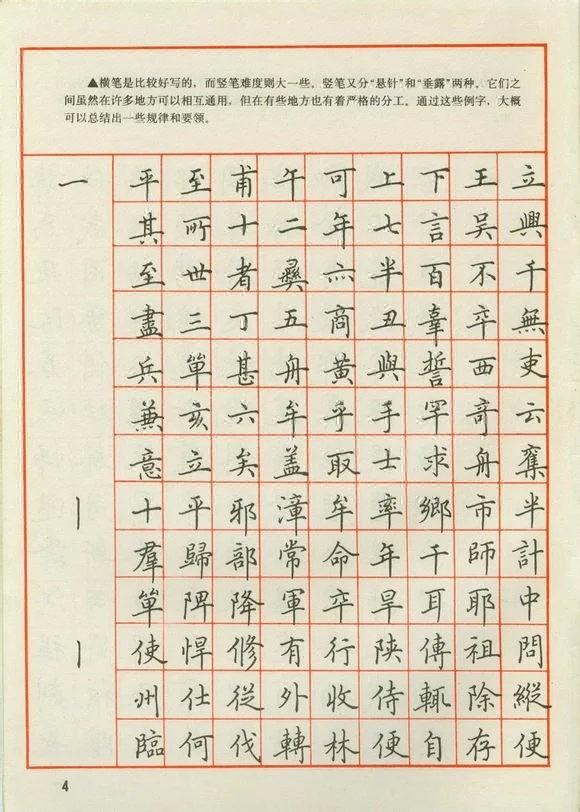 ▲横笔是比较好写的，而竖笔难度则大一些。竖笔又分“悬针”和“垂露”两种，它们之
间虽然在许多地方可以相互通用，但在有些地方也有着严格的分工。通过这些例字，大概
可以总结出一些规律和要领。
一 平 至 甫 午 可 上 下 王 立
其 所 十 二 年 七 言 吴 興
至 世 者 彝 六 半 百 不 千
盡 三 丁 五 商 丑 辜 卒 無
兵 單 甚 舟 黄 與 誓 西 吏
兼 亥 六 牟 乎 手 罕 奇 云
意 立 矣 盖 取 士 求 舟 奮
丨 十 平 邪 漳 牟 率 鄉 市 半
羣 歸 部 常 命 年 干 師 計
單 陴 降 軍 卒 旱 耳 耶 中
丨 使 悍 修 有 行 陕 傳 祖 問
州 仕 從 外 收 侍 輒 除 縱
臨 何 伐 轉 林 便 自 存 便
4